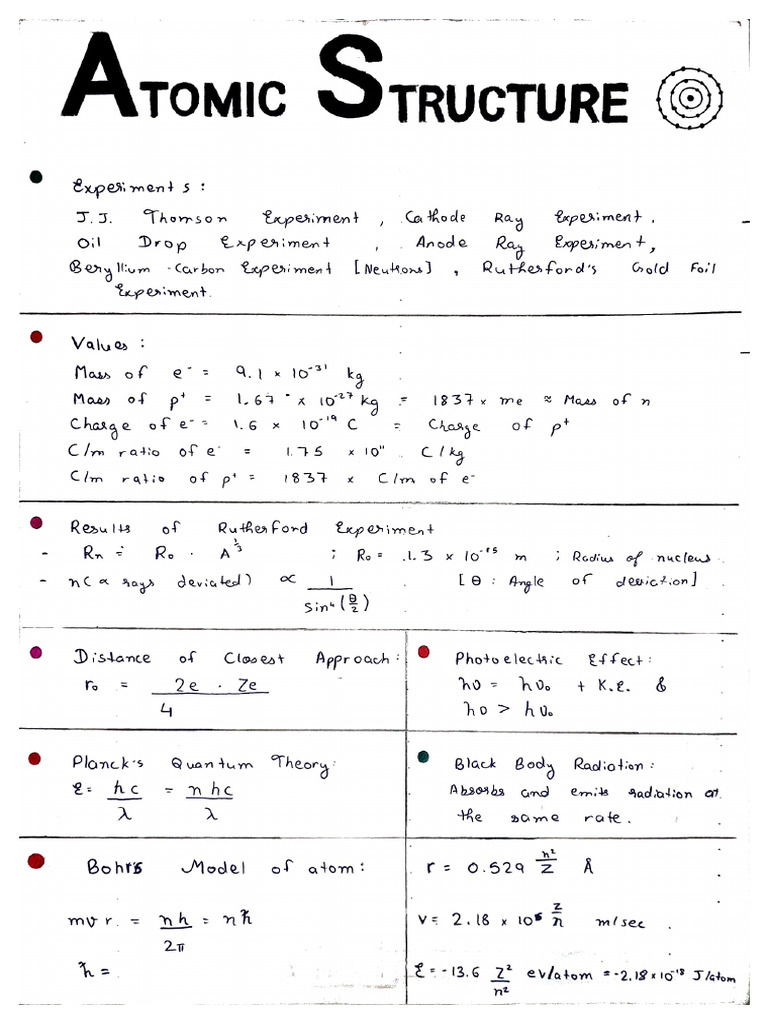 ATOMIC STRUCTURE
Experiments :
J.J. Thomson Experiment , Cathode Ray Experiment .
Oil Drop Experiment , Anode Ray Experiment,
Beryllium - Carbon Experiment [Neutrons] , Rutherford's Gold Foil
Experiment.
Values :
Mass of e⁻ = 9.1 × 10⁻³¹ kg
Mass of p⁺ = 1.67 × 10⁻²⁷ kg = 1837 × me ≈ Mass of n
Charge of e⁻ = 1.6 × 10⁻¹⁹ C = Charge of p⁺
C/m ratio of e⁻ = 1.75 × 10¹¹ C/kg
C/m ratio of p⁺ = 1837 × C/m of e⁻
Results of Rutherford Experiment
- Rn = R₀ · A^1/3 ; R₀ = 1.3 × 10⁻¹⁵ m ; Radius of nucleus
- n(∝ rays deviated) ∝ 1/sin⁴(θ/2) [θ : Angle of deviction]
Distance of Closest Approach :
r₀ = 2e · Ze / 4
Photoelectric Effect :
hυ = hυ₀ + K.E. &
hυ > hυ₀
Planck's Quantum Theory:
E = hc/λ = nhc/λ
Black Body Radiation :
Absorbs and emits radiation at
the same rate.
Bohr's Model of atom :
mvr = nh/2π = nħ
ħ =
r = 0.529 n²/Z Å
v = 2.18 × 10⁶ Z/n m/sec
E = -13.6 Z²/n² ev/atom = -2.18 × 10⁻¹⁸ J/atom